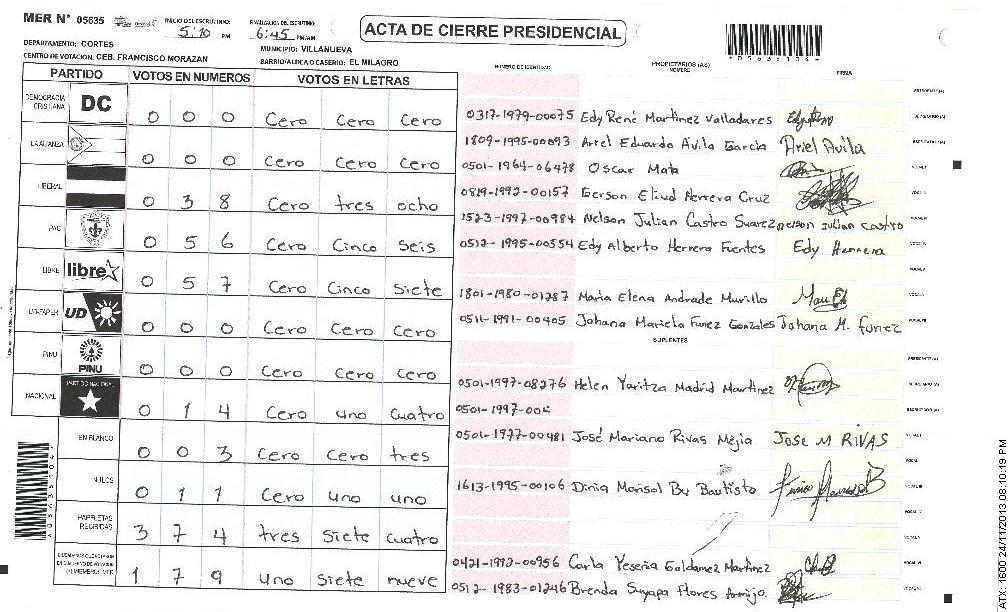 MER N° 05635 INICIO DEL ESCRUTINIO: 5:10 PM FINALIZACION DEL ESCRUTINIO: 6:45 PM/AM
ACTA DE CIERRE PRESIDENCIAL
*05635104*
DEPARTAMENTO: CORTES MUNICIPIO: VILLANUEVA
CENTRO DE VOTACION: CEB. FRANCISCO MORAZAN BARRIO/ALDEA O CASERIO: EL MILAGRO
PARTIDO VOTOS EN NUMEROS VOTOS EN LETRAS
DEMOCRACIA CRISTIANA DC 0 0 0 Cero Cero Cero
LA ALIANZA 0 0 0 Cero Cero Cero
LIBERAL 0 3 8 Cero tres ocho
PAC 0 5 6 Cero Cinco Seis
LIBRE libre 0 5 7 Cero Cinco Siete
UD-FAPER UD 0 0 0 Cero Cero Cero
PINU PINU 0 0 0 Cero Cero Cero
NACIONAL PARTIDO NACIONAL 0 1 4 Cero uno cuatro
EN BLANCO 0 0 3 Cero Cero tres
NULOS 0 1 1 Cero uno uno
PAPELETAS RECIBIDAS 3 7 4 tres Siete cuatro
1 7 9 uno Siete nueve
NUMERO DE IDENTIDAD PROPIETARIOS (AS) NOMBRE FIRMA
PRESIDENTE (A)
0317-1979-00075 Edy René Martinez Valladares SECRETARIO (A)
1809-1995-00093 Ariel Eduardo Avila Garcia Ariel Avila ESCRUTADOR (A)
0501-1964-06478 Oscar Mata VOCAL I
0819-1992-00157 Gerson Eliud Herrera Cruz
1523-1997-00984 Nelson Julian Castro Suarez nelson Julian castro
0512-1995-00554 Edy Alberto Herrera Fuentes Edy Herrera
1801-1980-01287 Maria Elena Andrade Murillo
0511-1991-00405 Johana Mariela Funez Gonzales Johana M. funez
SUPLENTES
PRESIDENTE (A)
0501-1997-08276 Helen Yaritza Madrid Martinez SECRETARIO (A)
0501-1997-00 ESCRUTADOR (A)
0501-1977-00481 José Mariano Rivas Mejia JOSE M RIVAS
1613-1995-00106 Dinia Marisol Bu Bautisto
0421-1992-00956 Carla Yesenia Galdamez Martinez
0512-1983-01246 Brenda Suyapa Flores Armijo.
ATX-1600 24/11/2013 08:10:19 PM